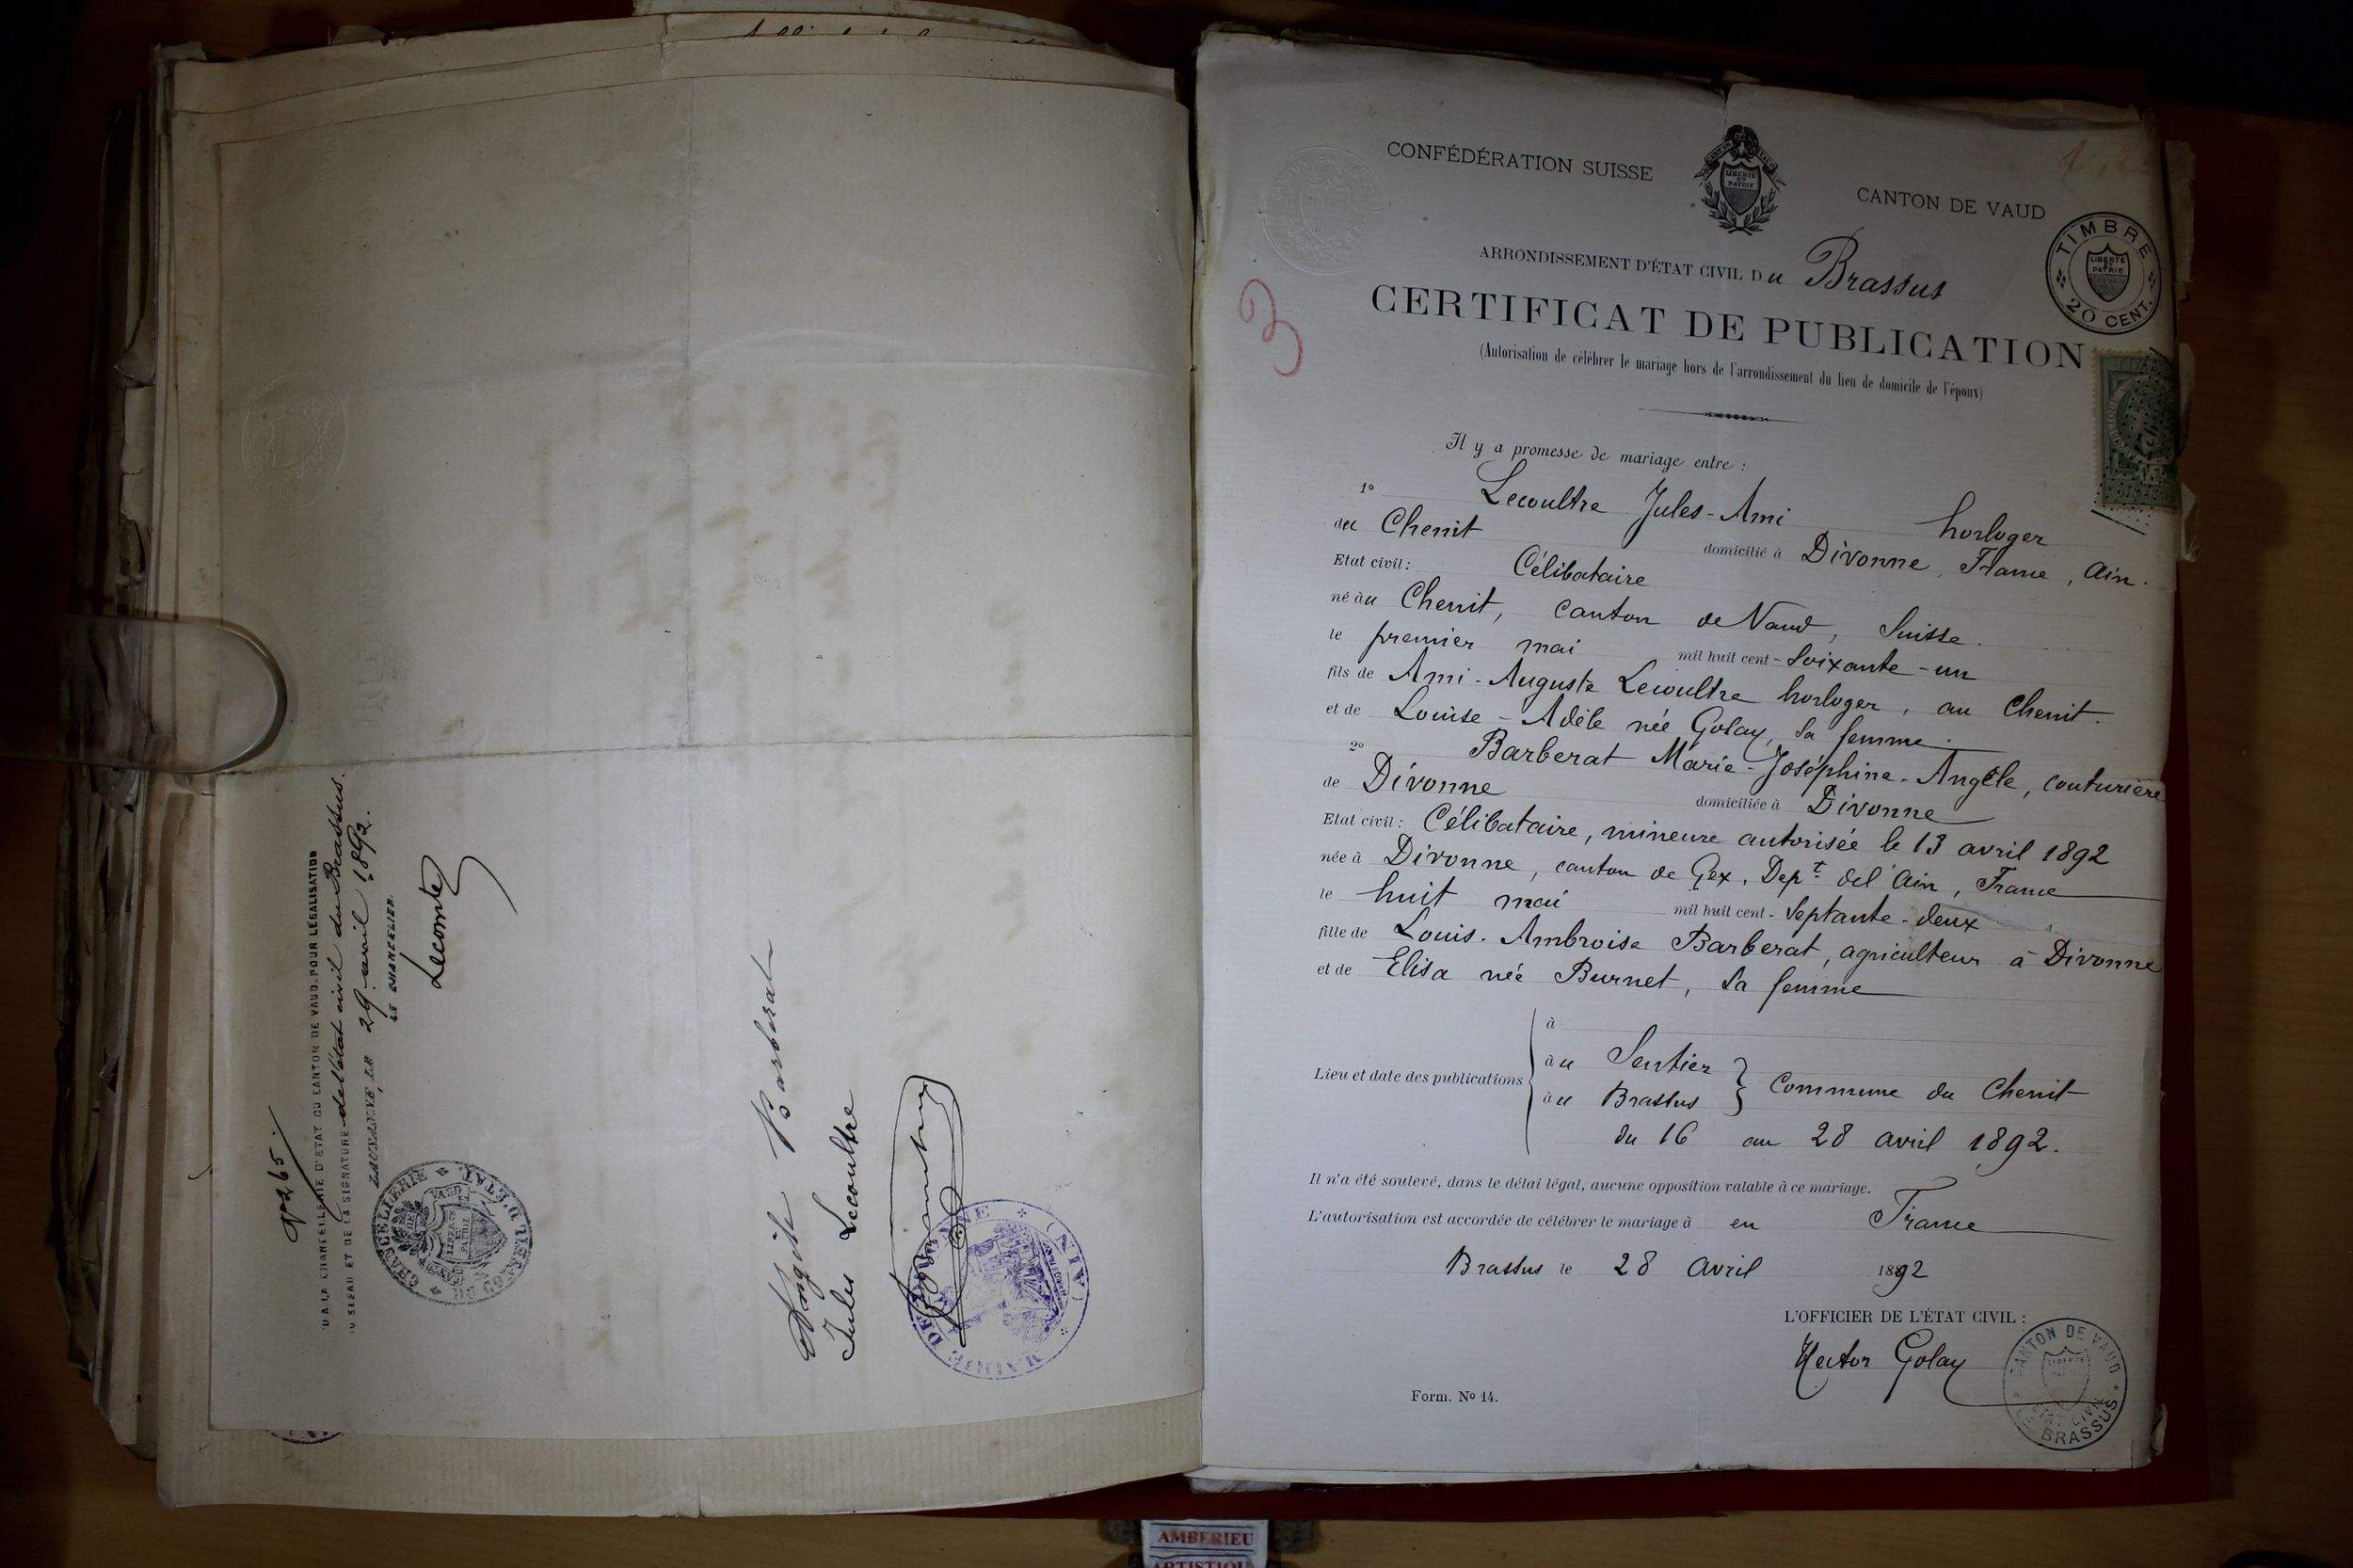 No 265.
VU A LA CHANCELLERIE D'ETAT DU CANTON DE VAUD, POUR LÉGALISATION
DU SCEAU ET DE LA SIGNATURE de l'état civil du Brassus.
LAUSANNE, LE 29 avril 1892.
LE CHANCELIER.
Lecomte
CHANCELLERIE D'ETAT
CANTON DE VAUD
LIBERTÉ ET PATRIE
Angèle Barberat
Jules Lecoultre
MAIRIE DE DIVONNE (AIN)
CONFÉDÉRATION SUISSE
LIBERTÉ ET PATRIE
CANTON DE VAUD
TIMBRE
LIBERTÉ ET PATRIE
20 CENT.
ARRONDISSEMENT D'ÉTAT CIVIL Du Brassus
3
CERTIFICAT DE PUBLICATION
(Autorisation de célébrer le mariage hors de l'arrondissement du lieu de domicile de l'époux)
Il y a promesse de mariage entre :
1º Lecoultre Jules-Ami horloger
du Chenit domicilié à Divonne, France, Ain.
Etat civil: Célibataire
né au Chenit, canton de Vaud, Suisse.
le premier mai mil huit cent-soixante-un
fils de Ami-Auguste Lecoultre horloger, au Chenit.
et de Louise-Adèle née Golay, sa femme.
2º Barberat Marie-Joséphine-Angèle, couturière
de Divonne domiciliée à Divonne
Etat civil: Célibataire, mineure autorisée le 13 avril 1892
née à Divonne, canton de Gex, Dept de l'Ain, France
le huit mai mil huit cent-septante-deux
fille de Louis-Ambroise Barberat, agriculteur à Divonne
et de Elisa née Burnet, sa femme
Lieu et date des publications
à
au Sentier
au Brassus } Commune du Chenit
du 16 au 28 avril 1892.
Il n'a été soulevé, dans le délai légal, aucune opposition valable à ce mariage.
L'autorisation est accordée de célébrer le mariage à en France
Brassus le 28 Avril 1892
L'OFFICIER DE L'ÉTAT CIVIL :
Hector Golay
CANTON DE VAUD
ÉTAT CIVIL
LE BRASSUS
Form. Nº 14.
AMBERIEU
ARTISTIQU